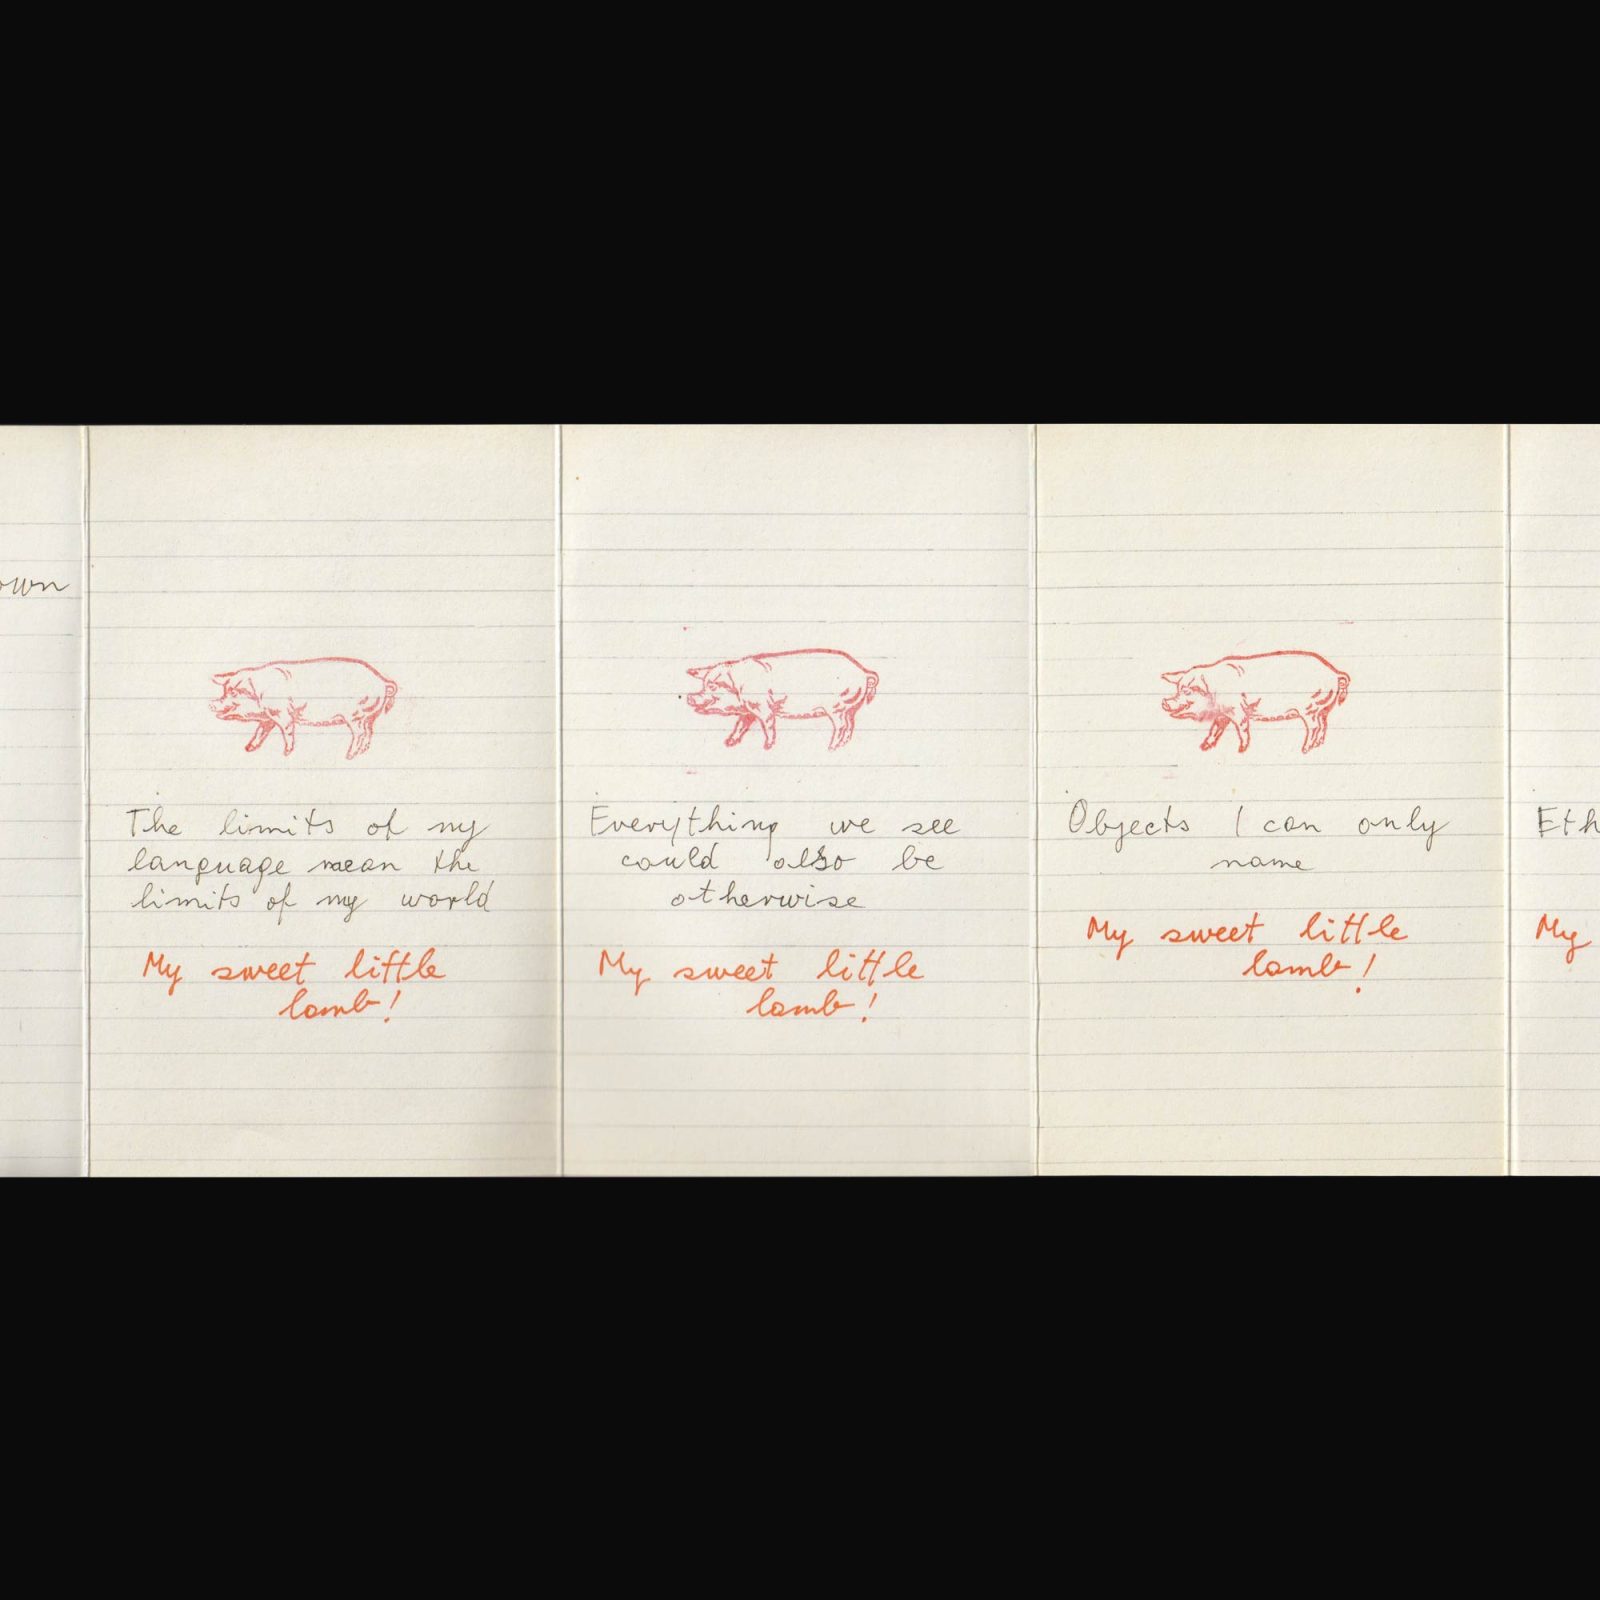 own
The limits of my
language mean the
limits of my world
My sweet little
lamb!
Everything we see
could also be
otherwise
My sweet little
lamb!
Objects I can only
name
My sweet little
lamb!
Eth
My